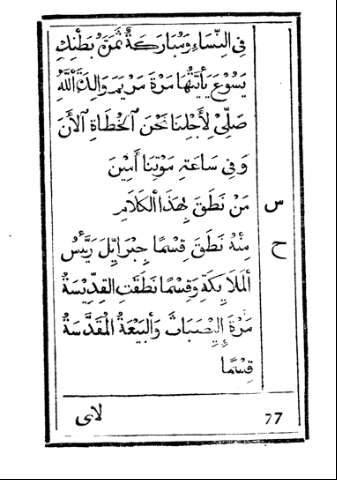 في النِّسَاءِ وَمُبَارَكَةٌ ثَمَرَةُ بَطْنِكِ
يَسُوعَ يَأَيَّتُهَا مَرْةَ مَرْيَمَ وَالِدَةَ ٱللَّهِ
صَلِّيْ لِأَجْلِنَا نَحْنَ ٱلخُطَاةِ ٱلأَنَ
وَفِي سَاعَةِ مَوْتِنَا أَمِيْنَ
س مَنْ نَطَقَ بِهٰذَا ٱلكَلَامِ
ح مِنْهُ نَطَقَ قِسْمًا جِبرَايِّلَ رَيَّسُ
ٱلمَلَايِكَةِ وَقِسْمًا نَطَقَتِ القِدِّيْسَةُ
مَرْةَ وَٱلبَيْعَةُ ٱلمُقَدَّسَةُ
قِسْمًا
77 لاي